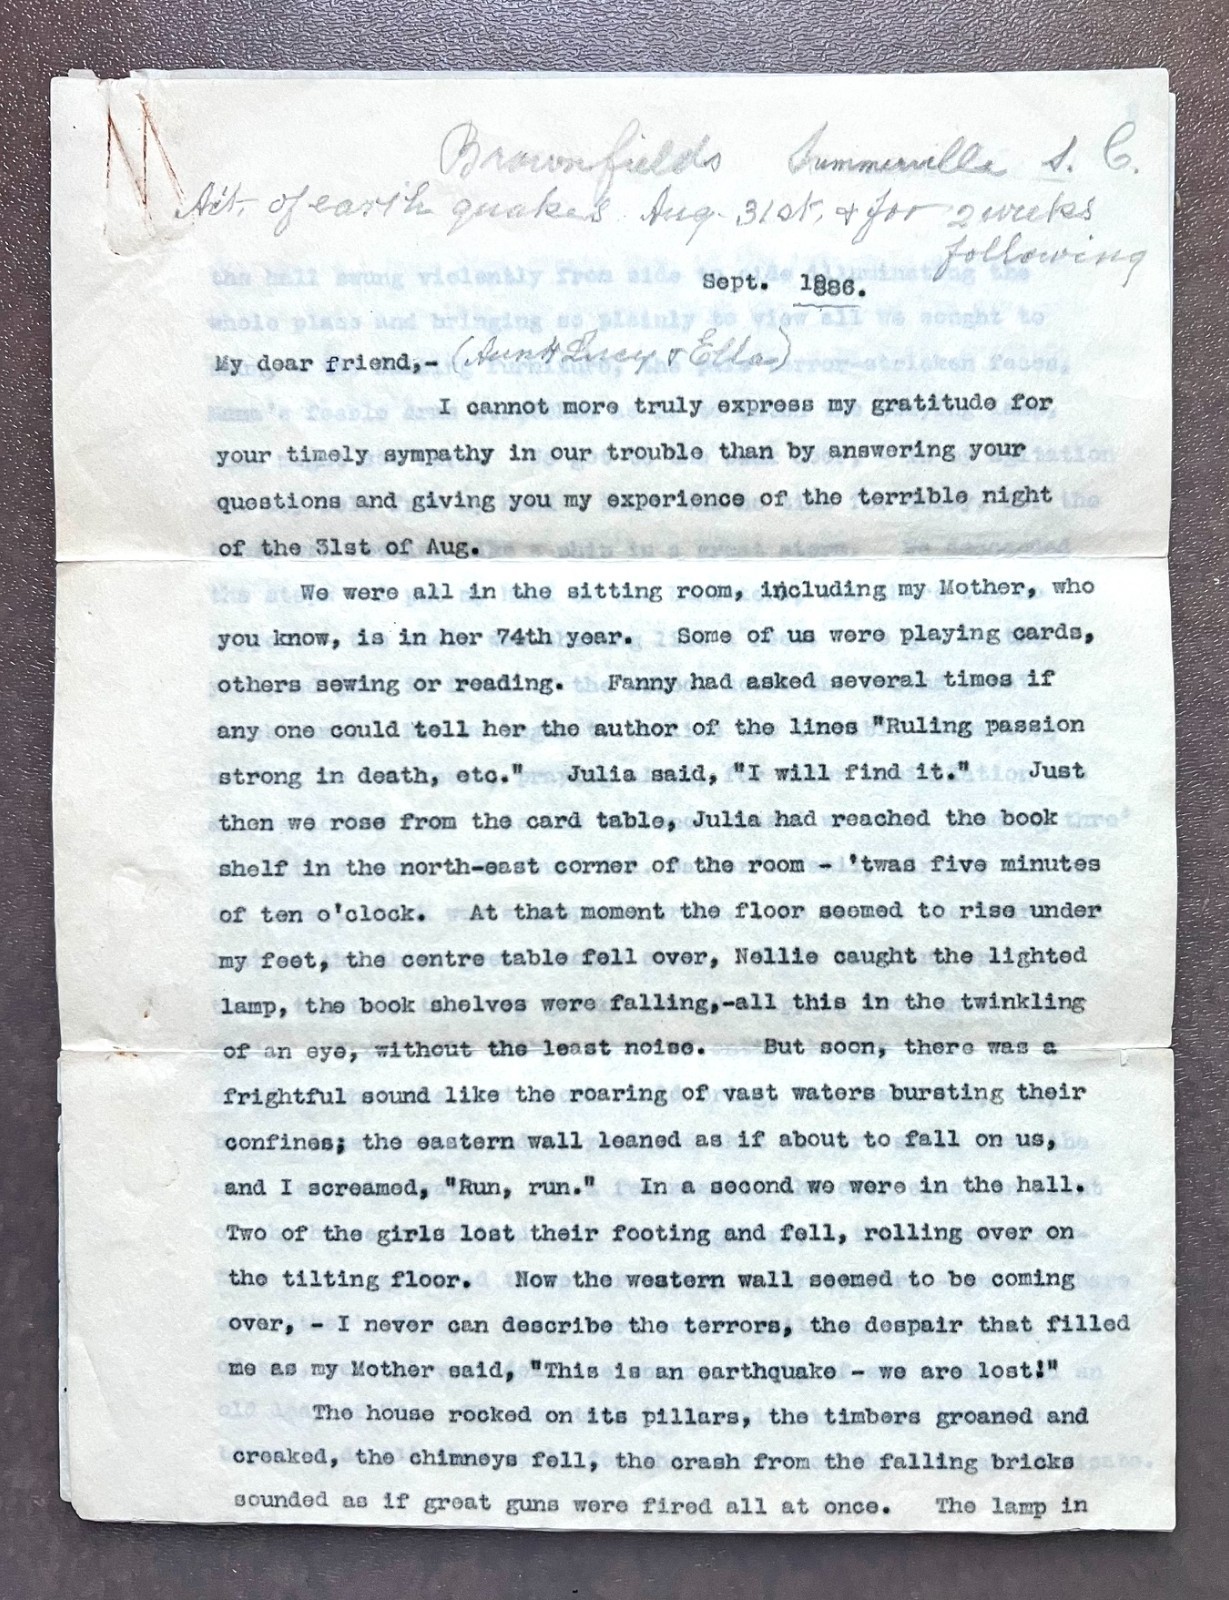 Brownfields Summerville S. C.
Act. of earth quakes Aug. 31st, & for 2 weeks
following
Sept. 1886.
My dear friend,- (Aunt Lucy & Ella)
I cannot more truly express my gratitude for
your timely sympathy in our trouble than by answering your
questions and giving you my experience of the terrible night
of the 31st of Aug.
We were all in the sitting room, including my Mother, who
you know, is in her 74th year. Some of us were playing cards,
others sewing or reading. Fanny had asked several times if
any one could tell her the author of the lines "Ruling passion
strong in death, etc." Julia said, "I will find it." Just
then we rose from the card table, Julia had reached the book
shelf in the north-east corner of the room - 'twas five minutes
of ten o'clock. At that moment the floor seemed to rise under
my feet, the centre table fell over, Nellie caught the lighted
lamp, the book shelves were falling,-all this in the twinkling
of an eye, without the least noise. But soon, there was a
frightful sound like the roaring of vast waters bursting their
confines; the eastern wall leaned as if about to fall on us,
and I screamed, "Run, run." In a second we were in the hall.
Two of the girls lost their footing and fell, rolling over on
the tilting floor. Now the western wall seemed to be coming
over, - I never can describe the terrors, the despair that filled
me as my Mother said, "This is an earthquake - we are lost!"
The house rocked on its pillars, the timbers groaned and
creaked, the chimneys fell, the crash from the falling bricks
sounded as if great guns were fired all at once. The lamp in